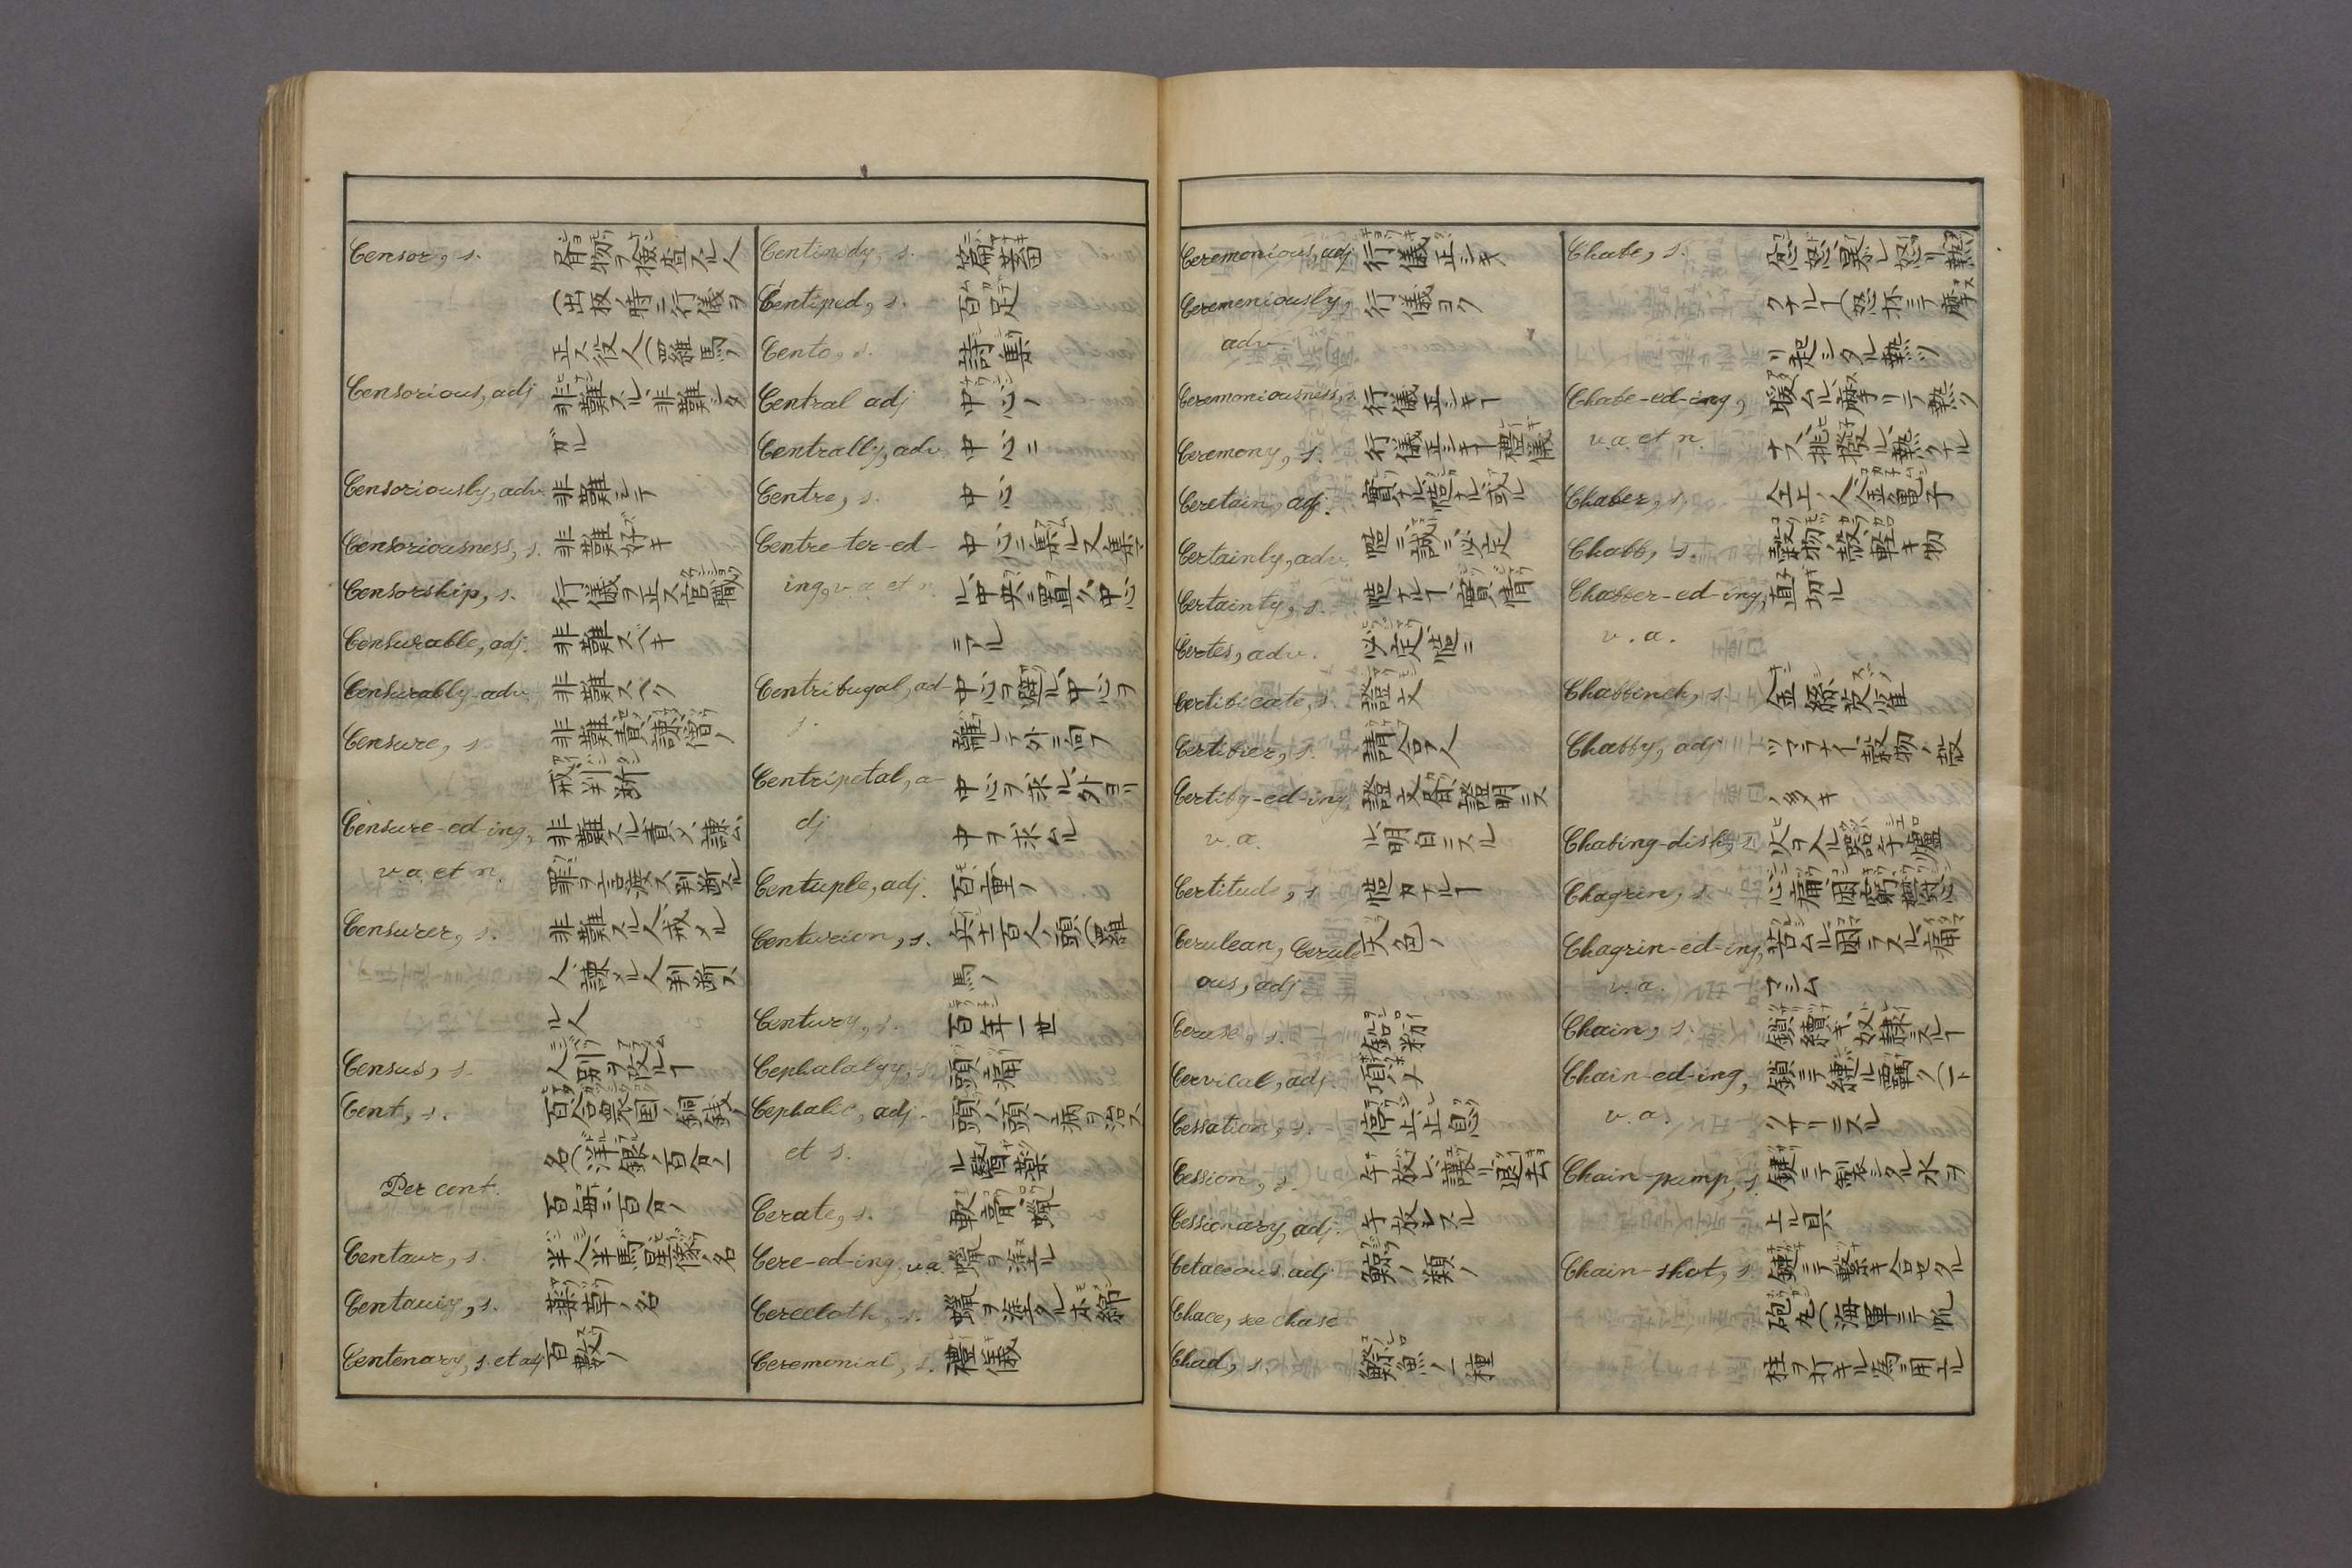 Censor, s. 俗物ヲ検査スル人
(出板ノ時ニ行儀ヲ
正ス役人(羅馬ノ
Censorious, adj 非難スル、非難シタ
ガル
Censoriously, adv. 非難シテ
Censoriousness, s. 非難好キ
Censorship, s. 行儀ヲ正ス官職
Censurable, adj. 非難スベキ
Censurably adv. 非難スベク
Censure, s. 非難、責、
戒、判断
Censure-ed-ing, 非難スル、責メ、諫ム、
v. a. et n. 罪ヲ言渡ス、判断スル
Censurer, s. 非難スル人、戒メル
人、諫メル人、判断ス
ル人
Census, s. 人別ヲ改ルヿ
Cent, s. 百、合衆国ノ銅銭ノ
名(洋銀ノ百分ノ一
Per cent. 百毎ニ、百分ノ
Centaur, s. 半人半馬、星像ノ名
Centaury, s. 薬草ノ名
Centenary, s. et adj 百数ノ
Centinody, s. 萹蓄
Centiped, s. 百足
Cento, s. 詩集
Central adj 中心ノ
Centrally, adv 中心ニ
Centre, s. 中心
Centre-ter-ed- 中心ニ集ル又集ム
ing, v. a. et n. ル、中央ニ置ク、中心
ニアル
Centrifugal, ad- 中心ヲ避ル、中心ヲ
j. 離レテ外ニ向フ
Centripetal, a- 中心ヲ求ル、外ヨリ
dj 中ヲ求ムル
Centuple, adj. 百重ノ
Centurion, s. 兵士百人ノ頭(羅
馬ノ
Century, s. 百年、一世
Cephalalgy, s. 頭痛
Cephalic, adj. 頭ノ、頭ノ病ヲ治ス
et s. ル醫薬
Cerate, s. 軟膏蠟
Cere-ed-ing, v. a. 蠟ヲ塗ル
Cerecloth, s. 蠟ヲ塗タル木綿
Ceremonial, s. 禮儀
Ceremonious, adj 行儀正シキ
Ceremoniously, 行儀ヨク
adv.
Ceremoniousness, s. 行儀正シキヿ
Ceremony, s. 行儀正シキヿ、禮儀
Ceretain, adj. 實ナル、慥ナル、或ル
Certainly, adv. 慥ニ、誠ニ、必定
Certainty, s. 慥ナルヿ、實情
Certes, adv. 必定、慥ニ
Certificate, s. 證文
Certifier, s. 請合フ人
Certify-ed-ing 證文、證明ニス
v. a. ル、明白ニスル
Certitude, s. 慥カナルヿ
Cerulean, Cerule 天色ノ
ous, adj
Ceruse, s. 鉛粉
Cervical, adj. 項ノ
Cessation, s. 停止、止息
Cession, s. 手放シ、譲リ、退去
Cessionary, adj. 手放シスル
Cetaceous. adj 鯨ノ類ノ
Chace, see chase
Chad, s. 魚ノ一種
Chafe, s. 怒、暴レ怒リ、熱
クナルヿ(怒抔ニテ、摩
リ起シタル熱ツ
Chafe-ed-ing, 暖ムル、摩リテ熱ツ
v. a. et n. ナス、挑撥ル、熱クナル
Chafer, s. 仝上ノ人、金亀子
Chaff, s. 穀物ノ殻、軽キ物
Chaffer-ed-ing, 直切ル
v. a.
Chaffinch, s. 雀
Chaffy, adj ツマラナイ、穀物ノ殻
ノ多キ
Chafing-dish, s. 火ヲ入ル器、手爐
Chagrin, s. 心痛、困窮
Chagrin-ed-ing, 苦ムル、困ラスル、痛
v. a. マシム
Chain, s. 鎖、續キ、奴隷ニスルヿ
Chain-ed-ing, 鎖ニテ縺ル、羈ク(一ト
v. a. ツナリニスル
Chain-pump, s. 鏈ニテ製シタル水ヲ
上ル具
Chain-shot, s. 鏈ニテ繋キ合セタル
砲丸(海軍ニテ帆
柱ヲ打キル為ニ用ユル